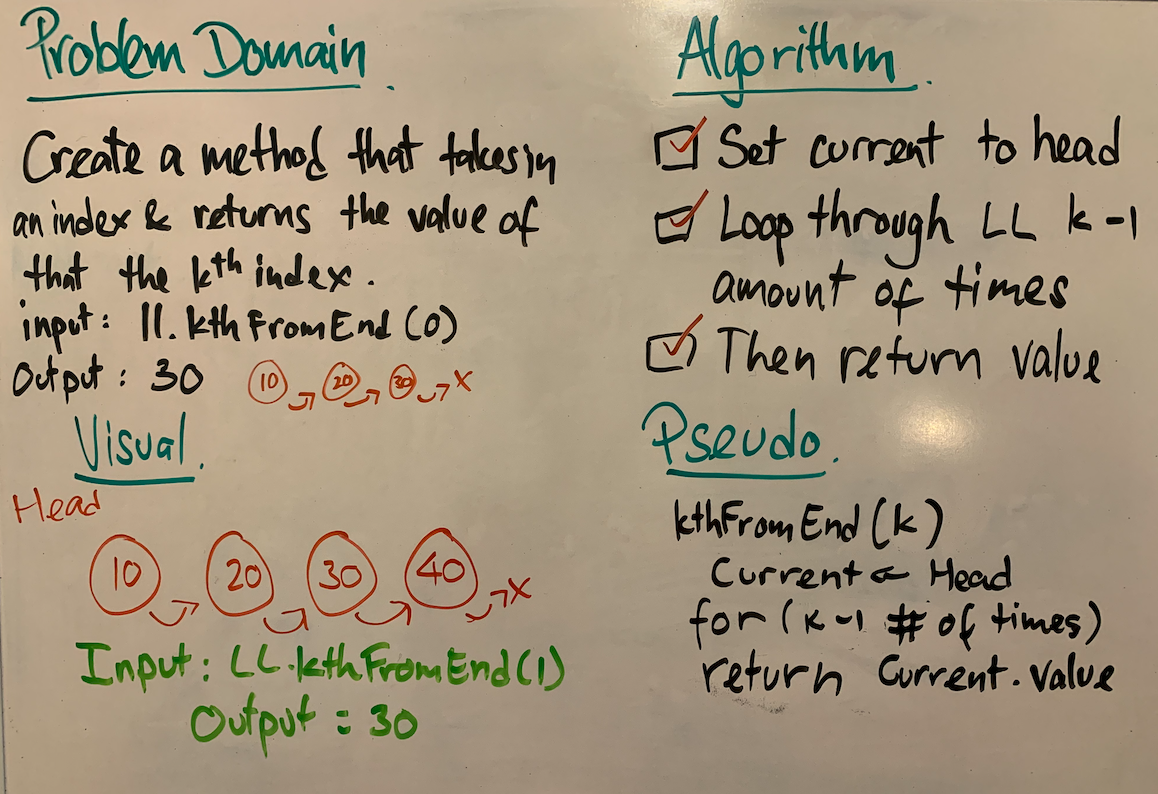 Problem Domain.
Create a method that takes in
an index & returns the value of
that the kth index.
input: ll.kthFromEnd(0)
Output: 30
10 20 30 X
Visual.
Head
10 20 30 40 X
Input: LL.kthFromEnd(1)
Output: 30
Algorithm.
Set current to head
Loop through LL k-1
amount of times
Then return value
Pseudo.
kthFromEnd(k)
Current ← Head
for (k-1 # of times)
return Current.value